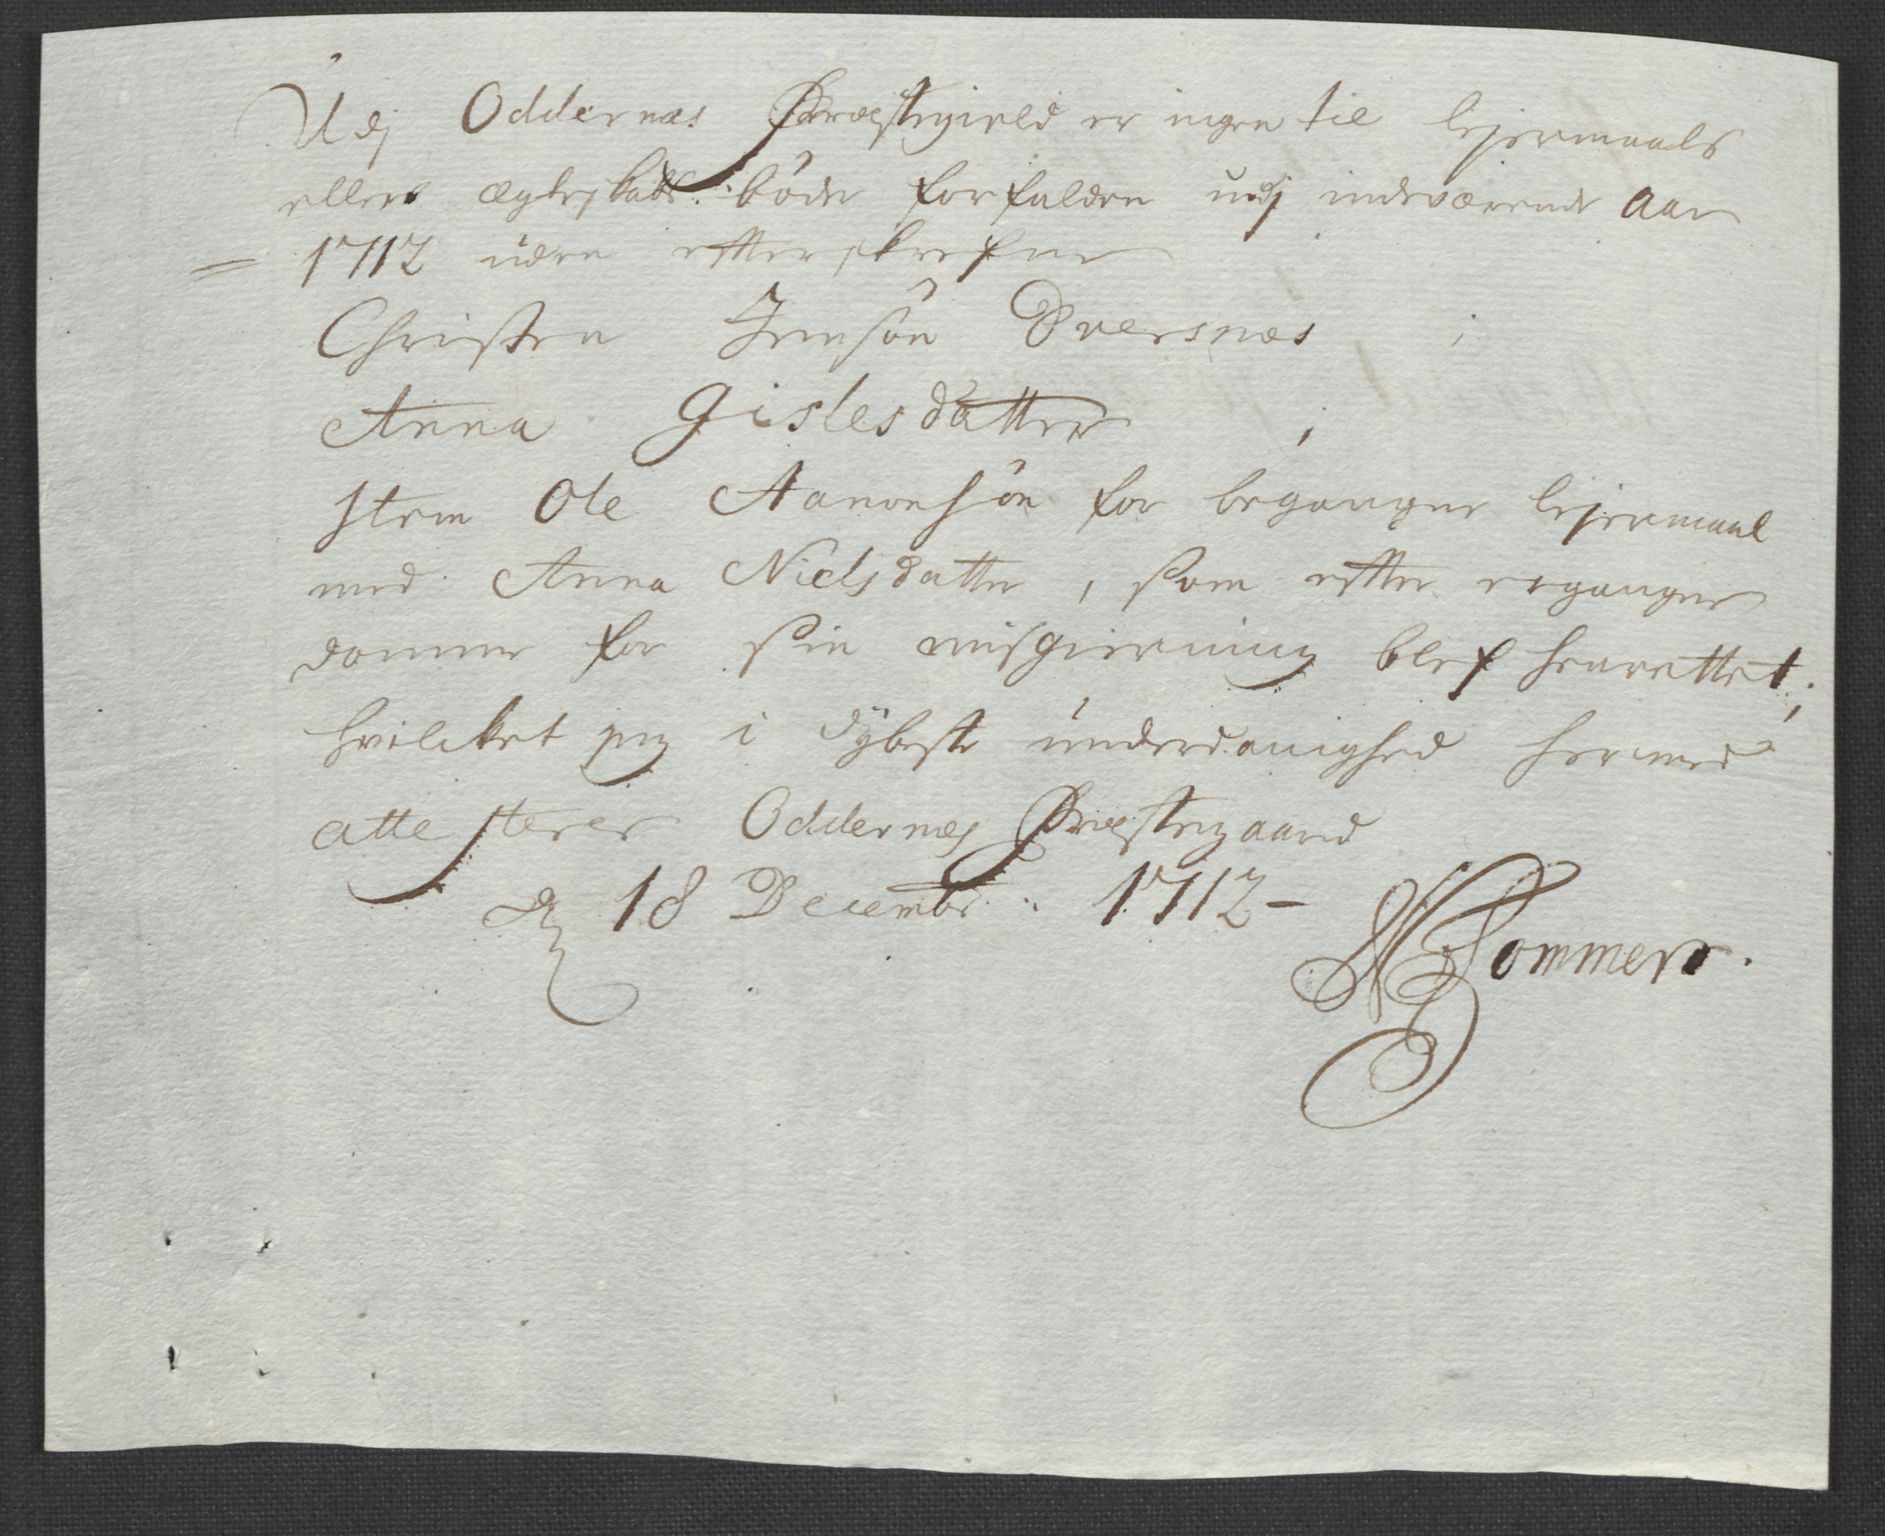 Udj Oddernæs Præstegield er ingen til lejermaals
ellers ægteskabs bøder forfalden udj indeværende Aar
= 1712 uden efterskrefne
Christen Jensön Dversnæs ;
Anna Gislesdatter ,
Item Ole Aanonsön for begangne lejermaal
med Anna Nielsdatter, som efter ergangne
domme for sin misgierning blef henrettet;
hvilcket jeg i dÿbeste underdanighed hermed
attesterer Oddernæs Præstegaard
d 18 Decembr: 1712 -
Sommer.